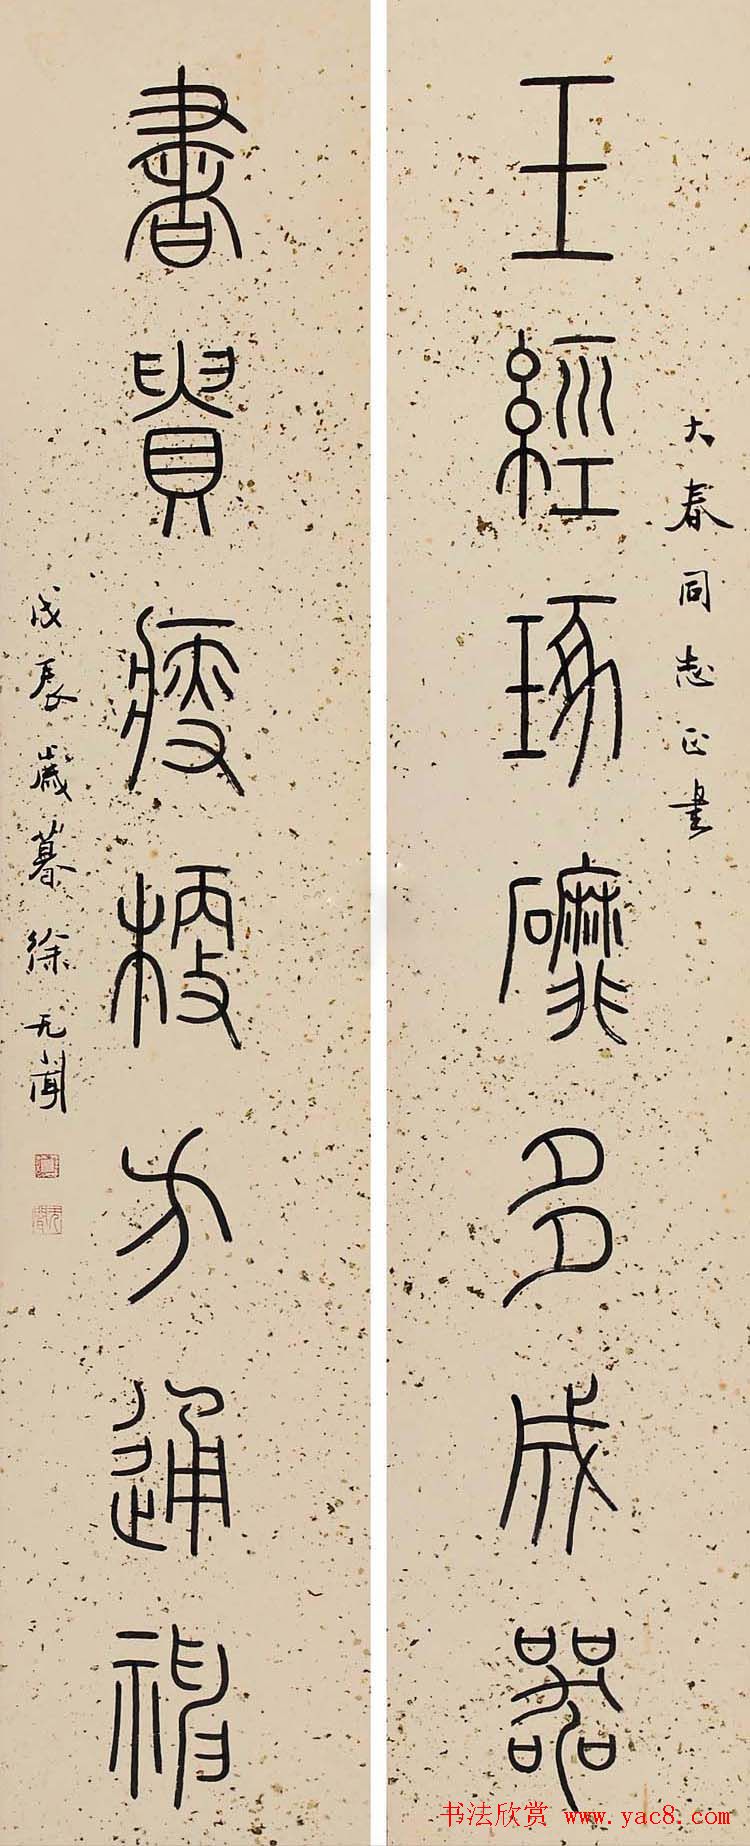 大春同志正書
玉經琢䃺多成器
書貴瘦梗方通神
戊辰歲暮徐无聞
书法欣赏 www.yac8.com